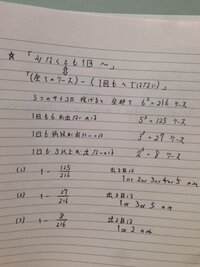 ☆ 「少なくとも1回 〜」
「(全てのケース) - (1回も 〜ではない)」
3つのサイコロ 投げると 全部で 6³ = 216 ケース
1回も6が出ないのは 5³ = 125 ケース
1回も偶数が出ないのは 3³ = 27 ケース
1回も3以上が出ないのは 2³ = 8 ケース
(1) 1 - 125/216 出る目は 1 or 2 or 3 or 4 or 5
(2) 1 - 27/216 出る目は 1 or 3 or 5
(3) 1 - 8/216 出る目は 1 or 2